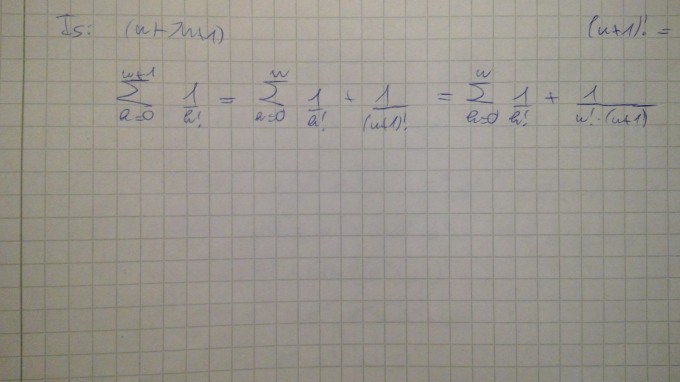 Is: (n→n+1) (n+1)! =
\sum_{k=0}^{n+1} \frac{1}{k!} = \sum_{k=0}^{n} \frac{1}{k!} + \frac{1}{(n+1)!} = \sum_{k=0}^{n} \frac{1}{k!} + \frac{1}{n! \cdot (n+1)}